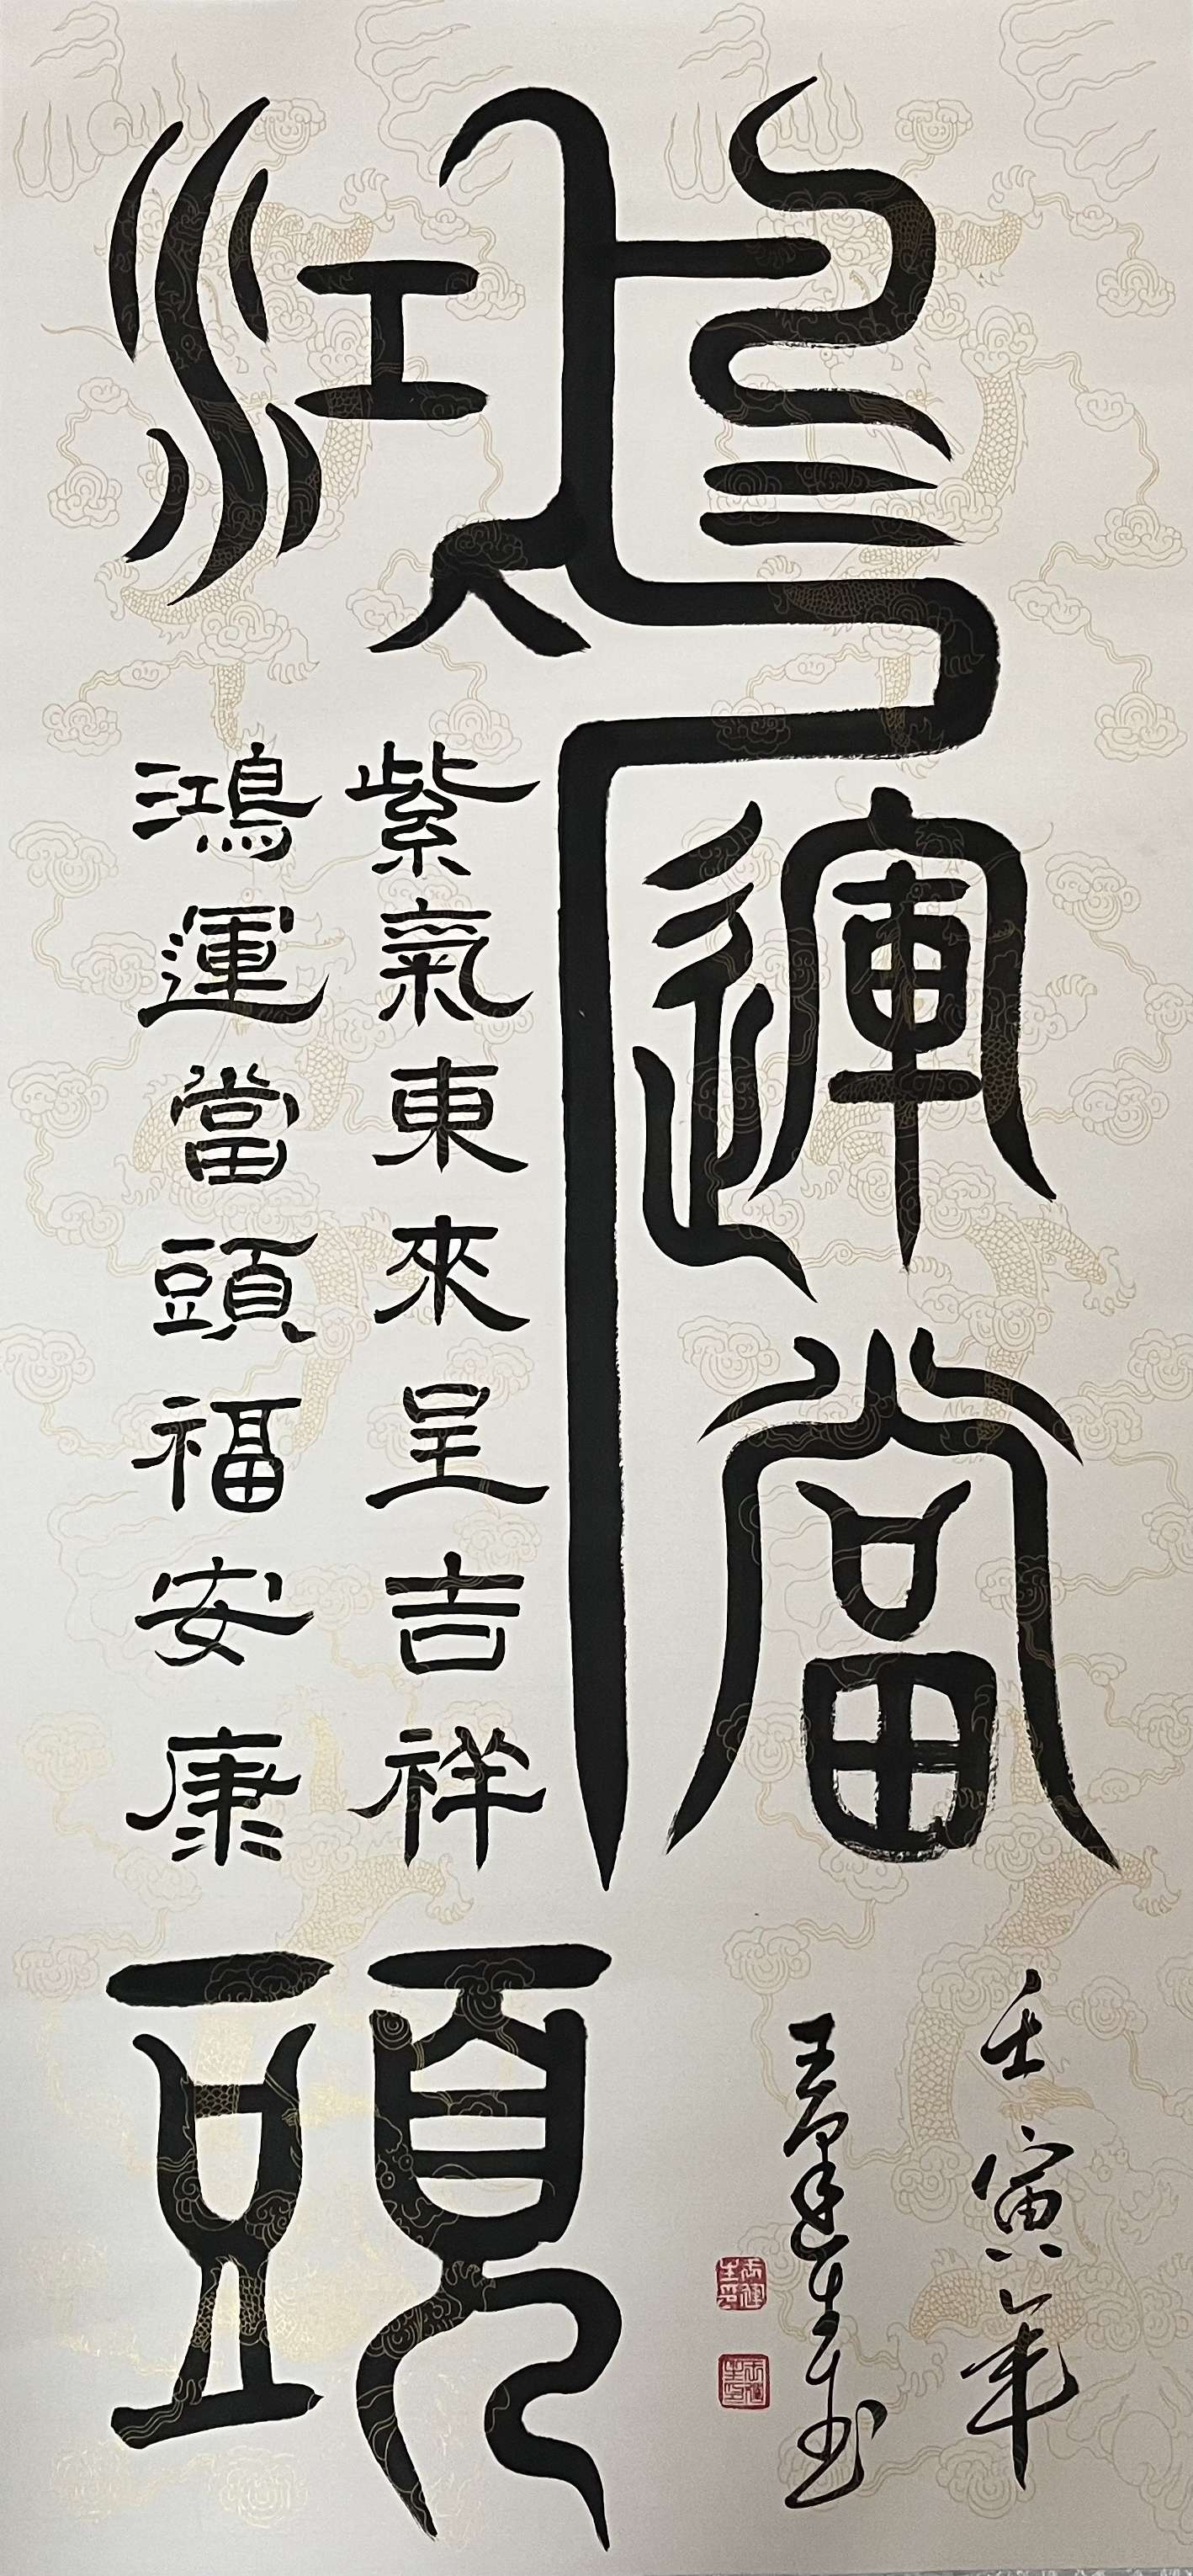 鴻運當頭
紫氣東來呈吉祥
鴻運當頭福安康
壬寅年